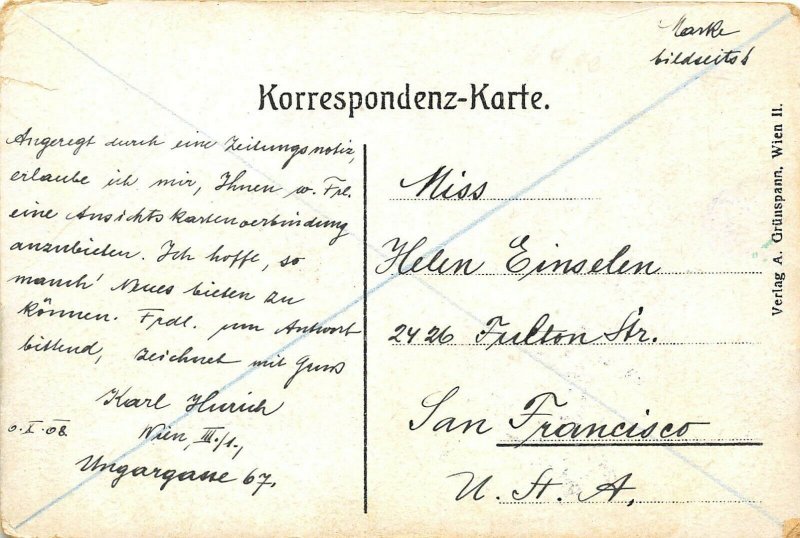 Marke
bildseits!
Korrespondenz-Karte.
Angeregt durch eine Zeitungsnotiz,
erlaube ich mir, Ihnen w. Frl.
eine Ansichtskartenverbindung
anzubieten. Ich hoffe, so
manch' Neues bieten zu
können. Frdl. um Antwort
bittend, zeichnet mit Gruss
Karl
Wien, III./1.,
Ungargasse 67.
Miss
Helen Einselen
2426 Fulton Str.
San Francisco
U. St. A.
Verlag A. Grünspann, Wien II.